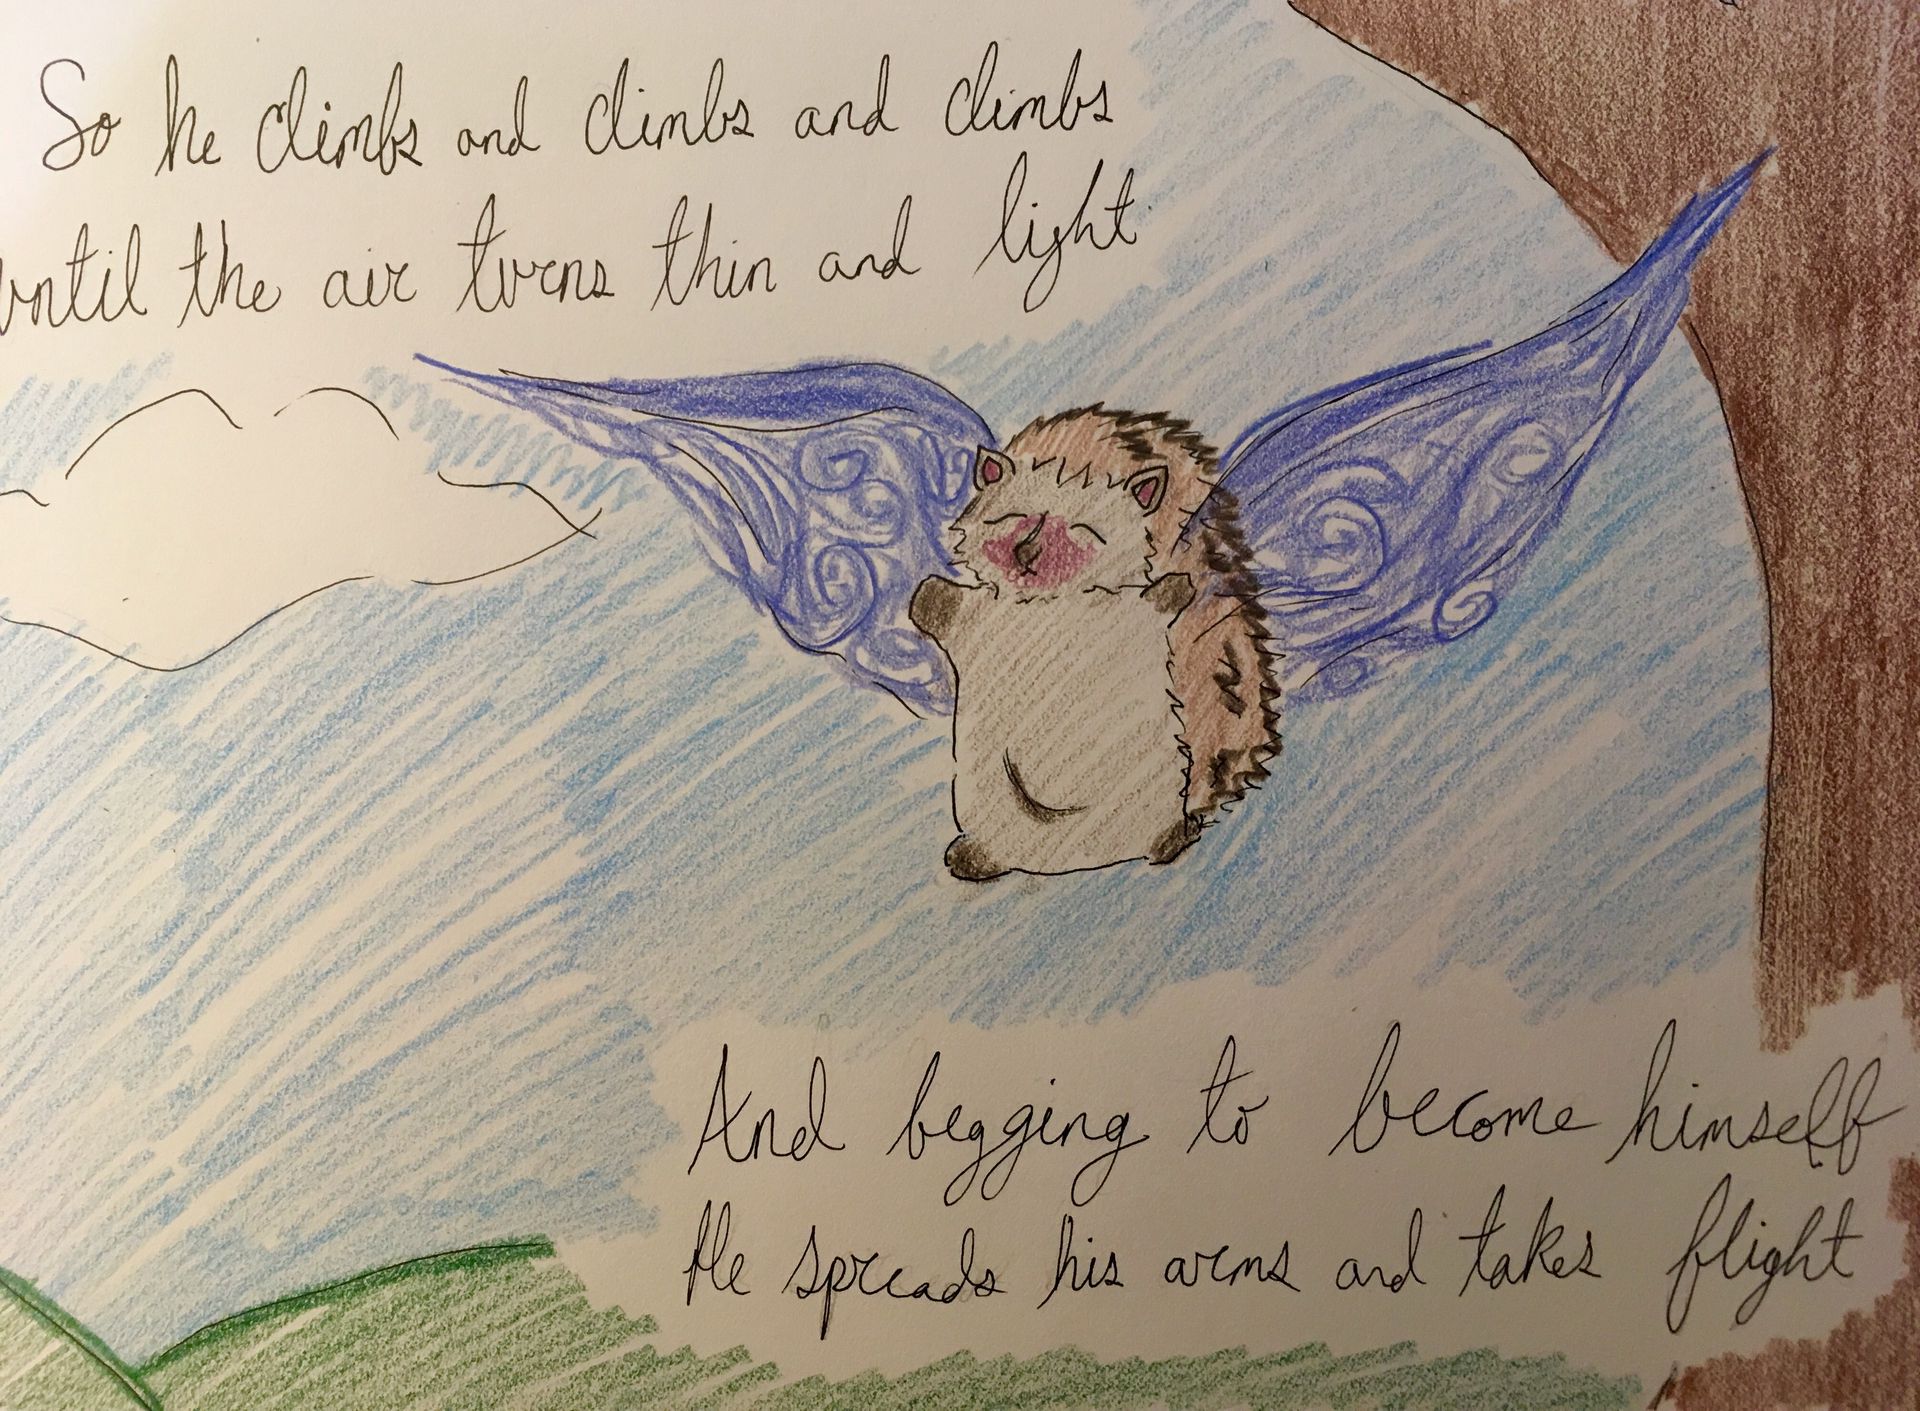 So he climbs and climbs and climbs
until the air turns thin and light
And begging to become himself
He spreads his arms and takes flight